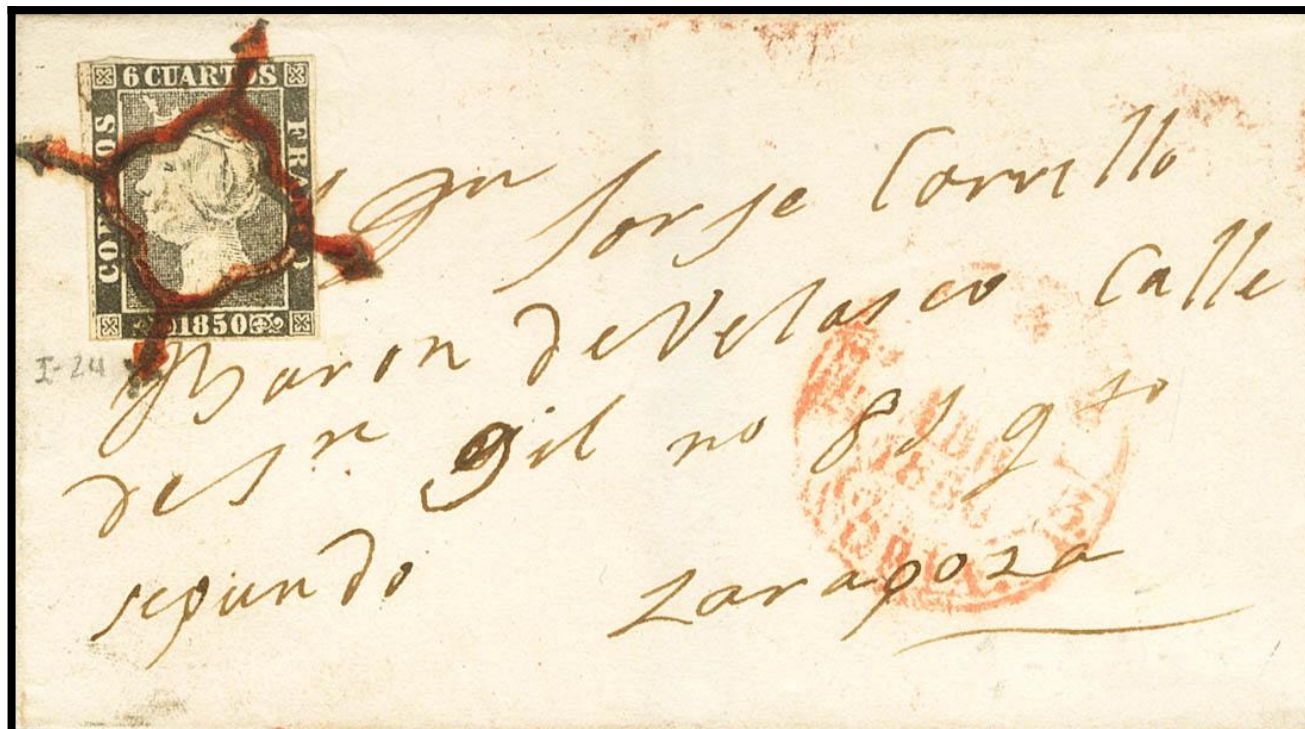 6 CUARTOS
CORREOS
FRANCO
1850
I-24
Dn Jorje Corrillo
Baron de Velasco Calle
de Sn gil no 81 qto
segundo zaragoza